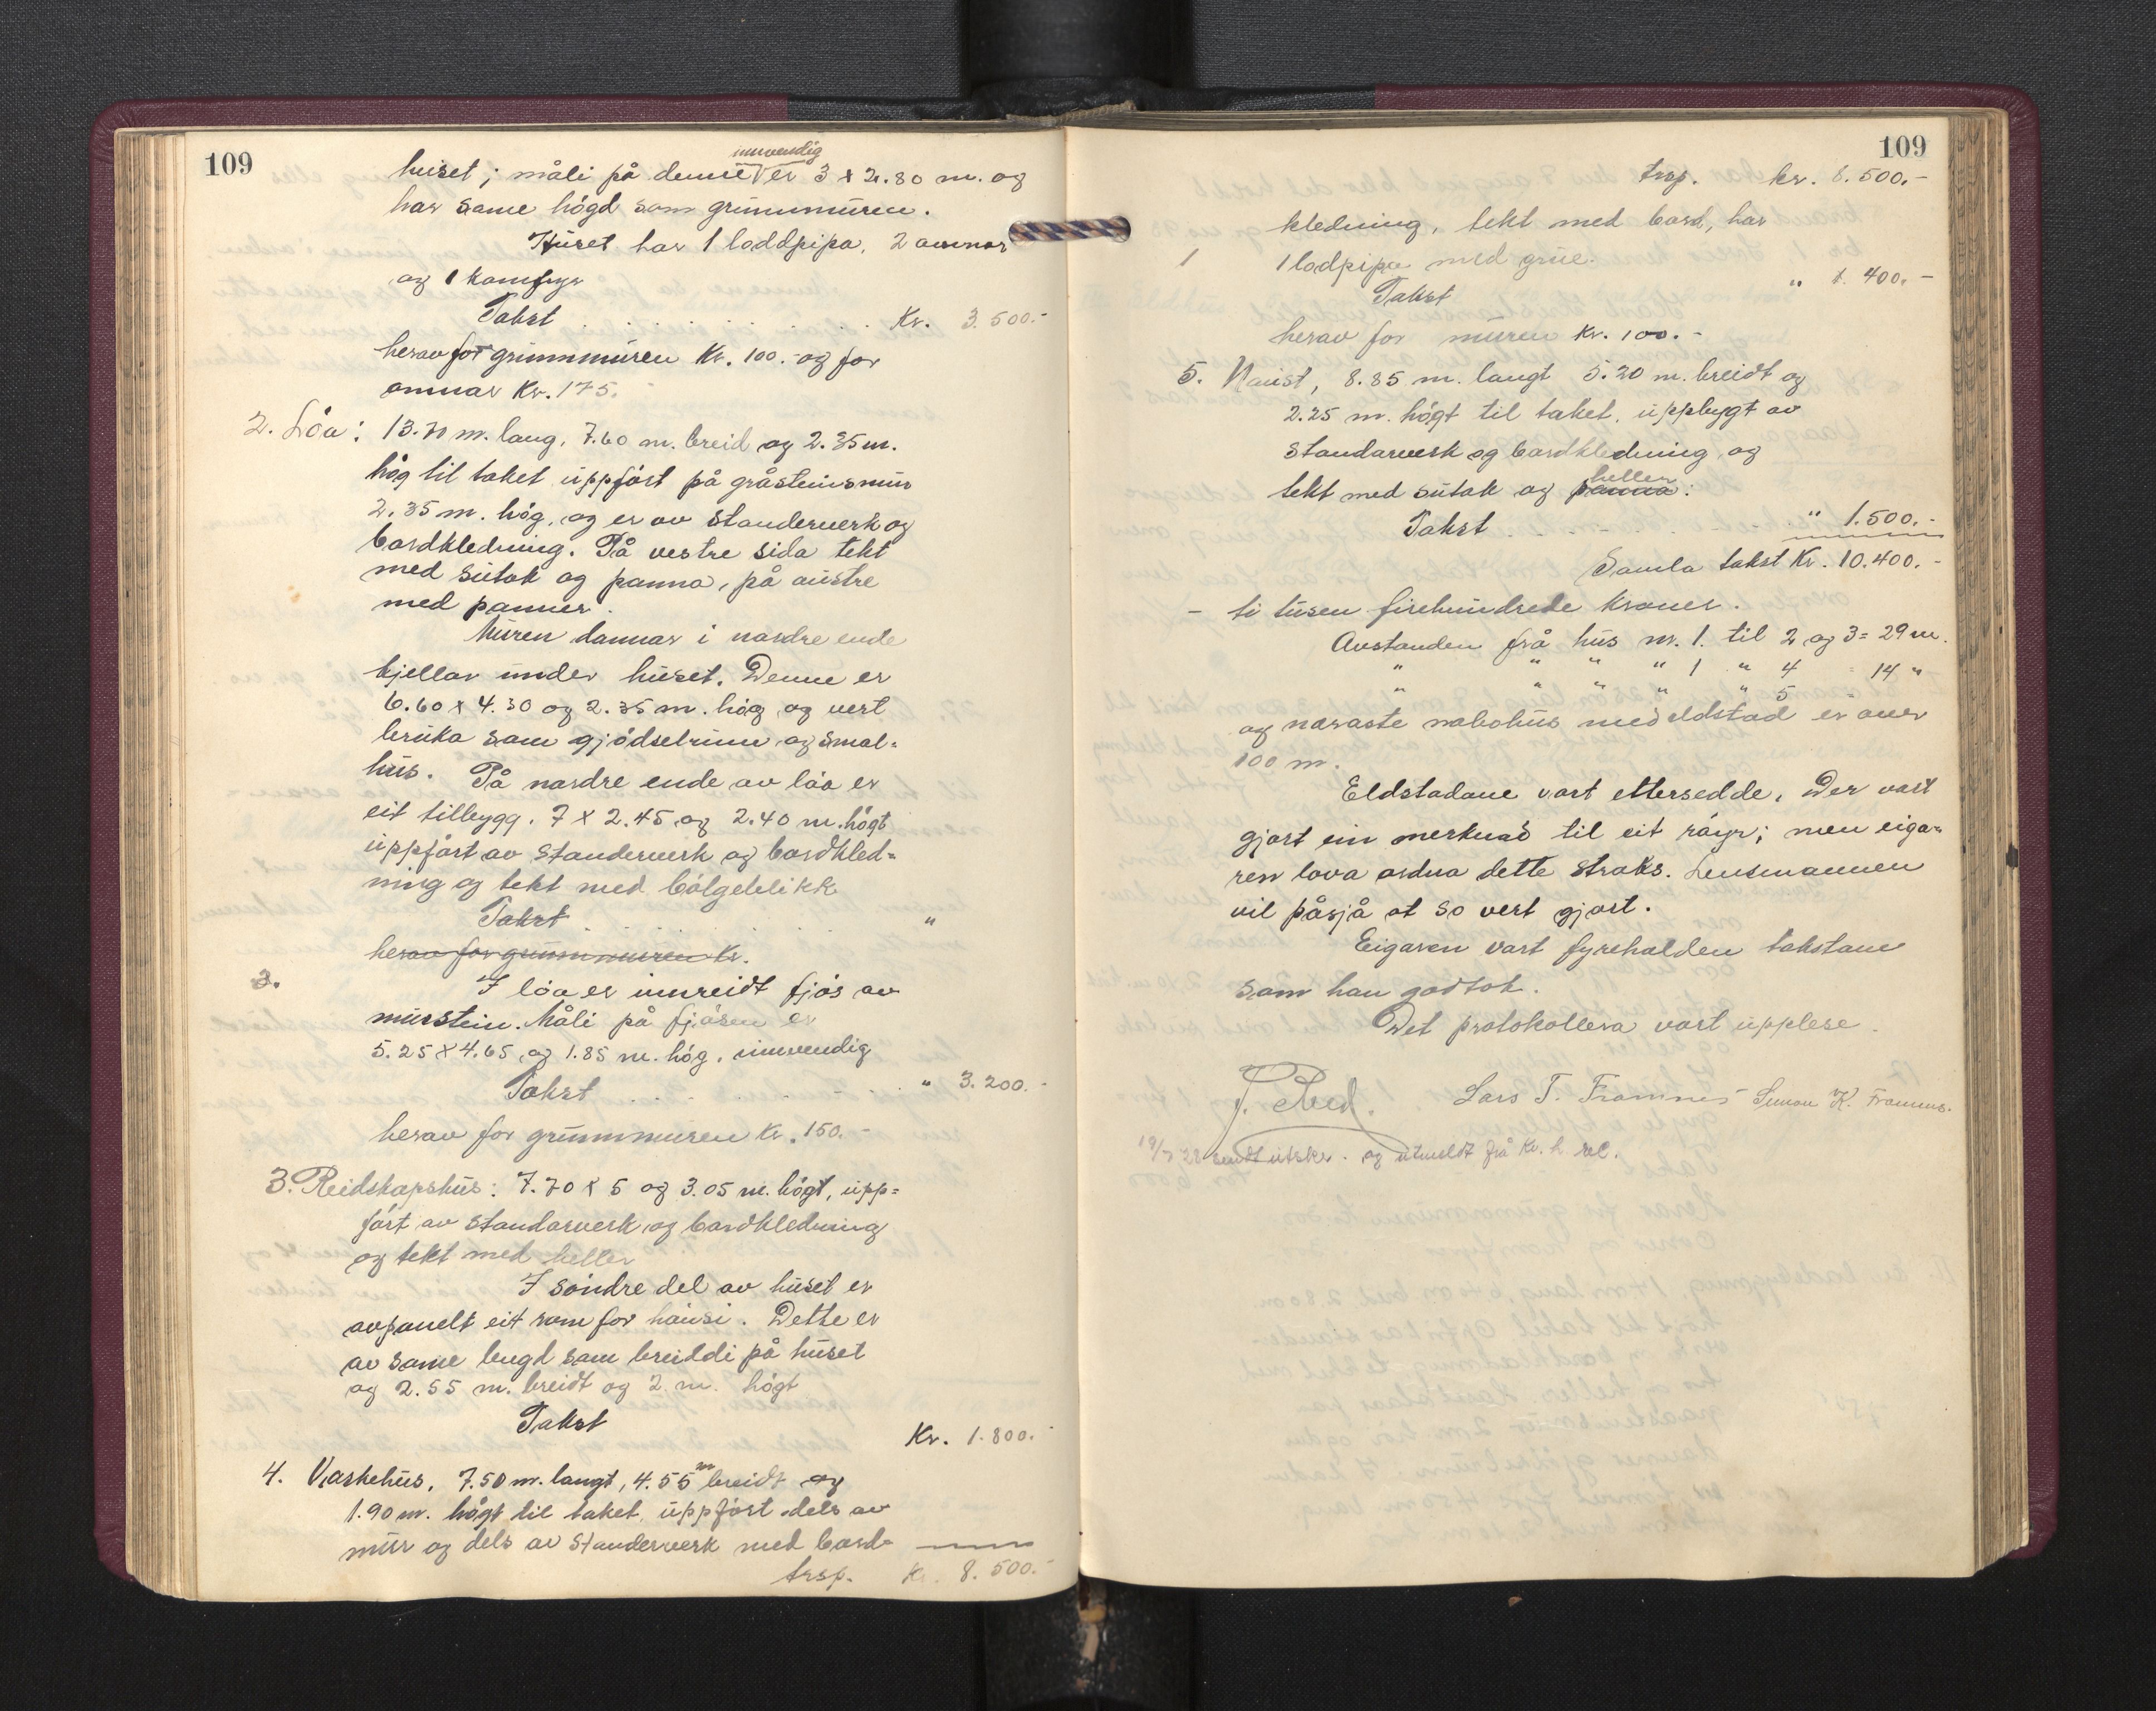 109
innvendig
huset; måli på denne er 3 x 2.80 m. og
har same högd som grunnmuren.
Huset har 1 loddpipa, 2 omnar
og 1 komfyr
Takst . . . . . . . . . Kr. 3.500.-
herav for grunnmuren Kr. 100.- og for
omnar Kr. 175.
2. Löa: 13.70 m. lang, 7.60 m. breid og 2.35 m.
hög til taket uppfört på gråsteinsmur
2.35 m. hög, og er av standerverk og
bordkledning. På vestre sida tekt
med sutak og panna, på austre
med panner.
Muren dannar i nordre ende
kjellar under huset. Denne er
6.60 x 4.30 og 2.35 m. hög og vert
bruka som gjödselrum og smal=
hus. På nordre ende av löa er
eit tilbygg. 7 x 2.45 og 2.40 m. högt
uppfört av standerverk og bordkled=
ning og tekt med bölgeblikk
Takst . . . . . . . . "
herav for grunnmuren Kr.
3. I löa er innreidt fjös av
murstein. Måli på fjösen er
5.25 x 4.65 og 1.85 m. hög, innvendig
Takst . . . . . . . " 3.200.-
herav for grunnmuren Kr. 150.-
3. Reidskapshus: 7.70 x 5 og 3.05 m. högt, upp=
fört av standarverk og bordkledning
og tekt med heller
I söndre del av huset er
avpanelt eit rom for hausi. Dette er
av same lengd som breiddi på huset
og 2.55 m. breidt og 2 m. högt
Takst Kr. 1.800.-
4. Vaskehus, 7.50 m. langt, 4.55 m breidt og
1.90 m. högt til taket, uppfört dels av
mur og dels av standerverk med bord-
trsp. Kr. 8.500.-
109
trsp. kr. 8.500.-
kledning, tekt med bord, har
1 1 lodpipe med grue.
Takst " 400.-
herav for muren Kr. 100.-
5. Naust, 8.85 m. langt 5.20 m. breidt og
2.25 m. högt til taket, uppbygt av
standarverk og bordkledning og
heller
tekt med sutak og panna:
Takst . . . . . . . " 1.500.-
Samla takst Kr. 10.400.-
- ti tusen firehundrede kroner.
Avstanden frå hus nr. 1. til 2 og 3 = 29 m.
" " " " 1 " 4 = 14 "
" " " " " 5 =
og næraste nabohus med eldstad er over
100 m.
Eldstadane vart ettersedde. Der vart
gjort ein merknad til eit röyr; men eiga=
ren lova ordna dette straks. Lensmannen
vil påsjå at so vert gjort.
Eigaren vart fyrehalden takstane
som han godtok.
Det protokollera vart upplese.
Lars T. Framnes Simon K. Framnes.
sendt utskr. og utmeldt frå Kr.